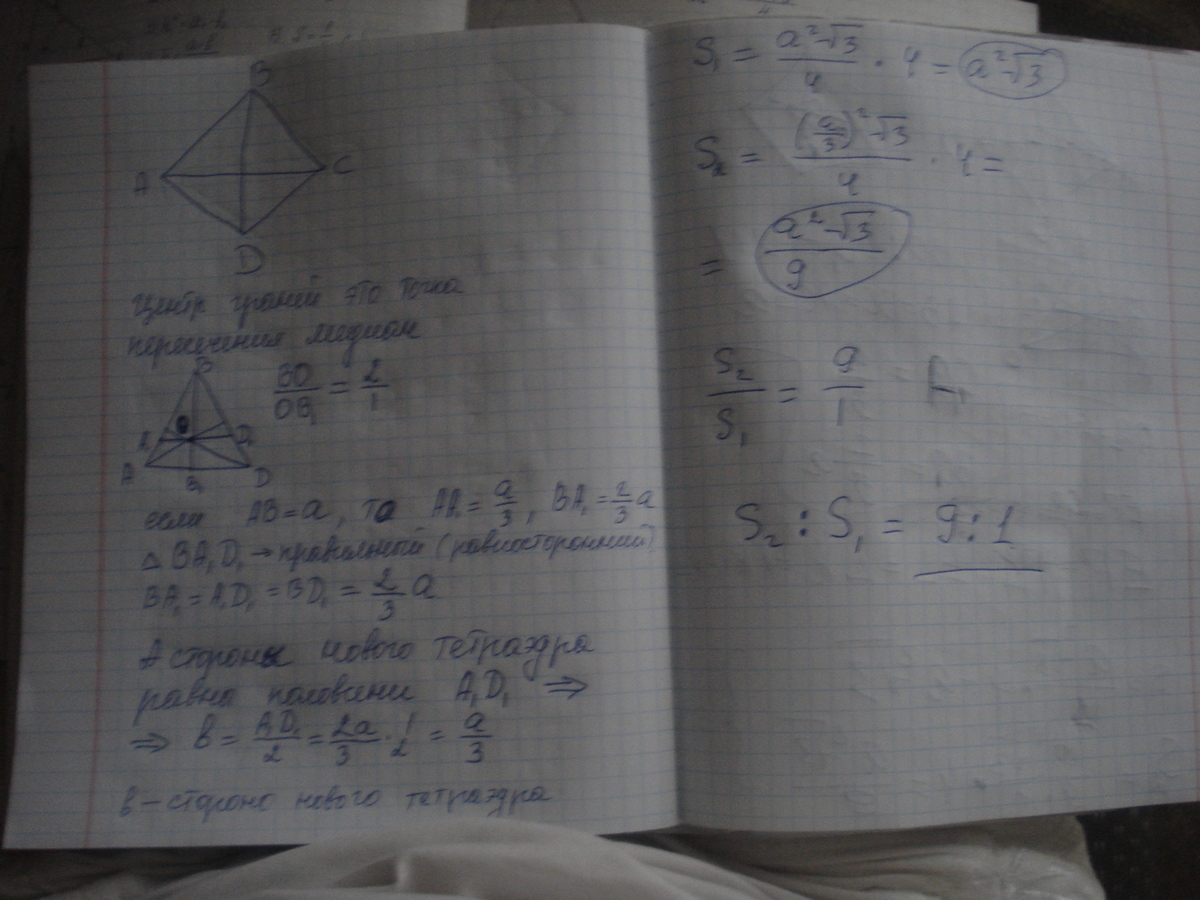 B
A
C
D
Центр граней это точка
пересечения медиан
B
BO/OB₁ = 2/1
O
A₁
D₁
A
B₁
D
если AB = a, то AA₁ = a/3, BA₁ = 2/3 a
△ BA₁D₁ → правильный (равносторонний)
BA₁ = A₁D₁ = BD₁ = 2/3 a
А стороны нового тетраэдра
равна половине A₁D₁ ⇒
⇒ b = A₁D₁/2 = 2a/3 · 1/2 = a/3
b – сторона нового тетраэдра
S₁ = a²√3/4 · 4 = a²√3
S₂ = (a/3)²√3/4 · 4 =
= a²√3/9
S₂/S₁ = 9/1
S₂ : S₁ = 9 : 1